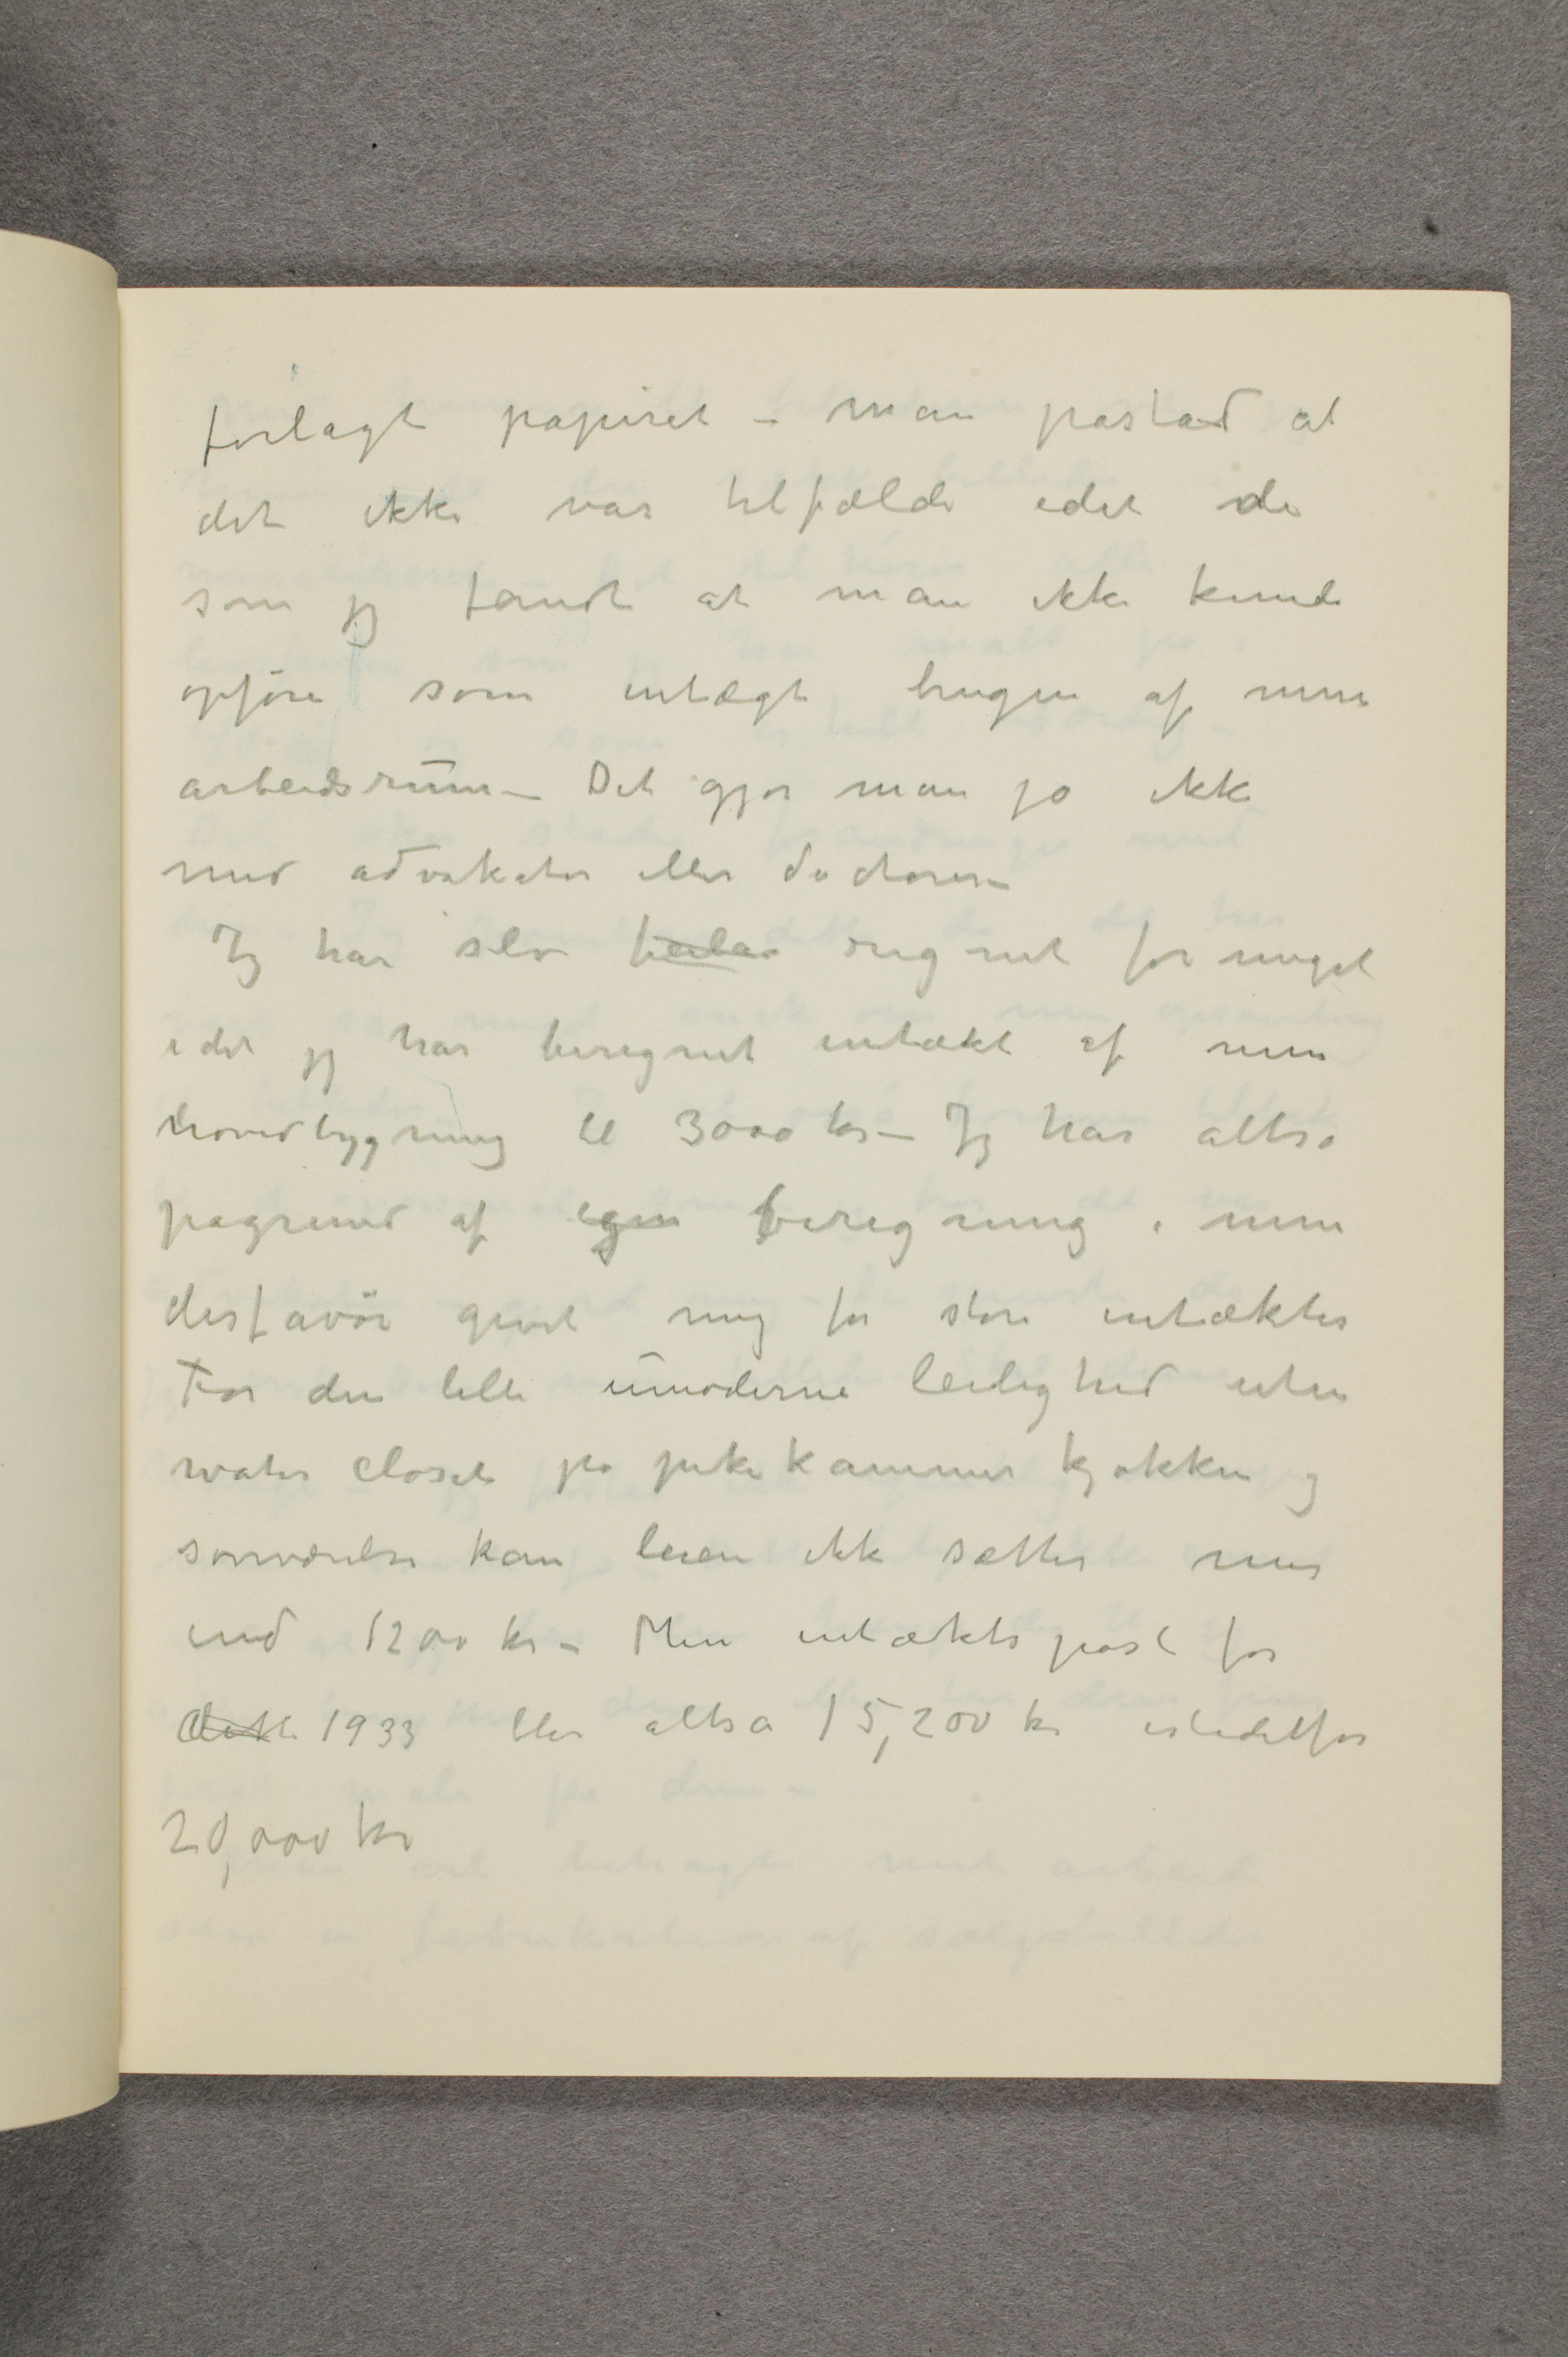 forlagt papiret – man påstad at
det ikke var tilfælde idet de
som jeg fandt at man ikke kunde
opføre som intægt brugen af mine
arbeidsrum – Det gjør man jo ikke
med advokater eller doctorer –
Jeg har selv regnet for meget
idet jeg har beregnet intækt af min
hovedbygning til 3000 kr – Jeg har altså
pågrund af egen beregning i min
disfavör givet mig for store intækter
For den lille umoderne leilighed uten
water closet på pikekammer kjøkken og
soveværelse kan leien ikke sættes mer
end 1200 kr – Min intæktspost for
1933 blir altså 15,200 kr istedetfor
20,000 kr